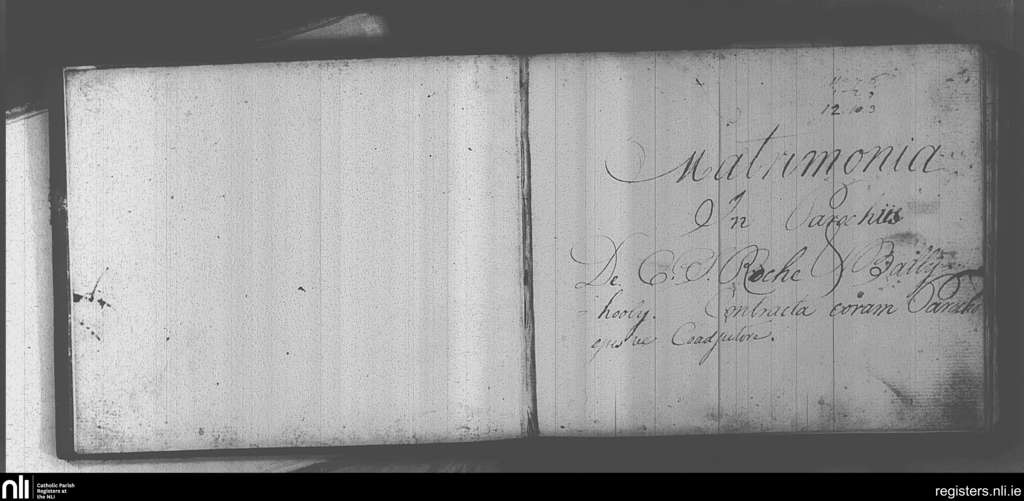 12.10.3
Matrimonia
In Parochiis
De C. T. Roche & Bally
-hooly. Contracta coram Parocho
ejus ve Coadjutore.
nli
Catholic Parish
Registers at
the NLI
registers.nli.ie